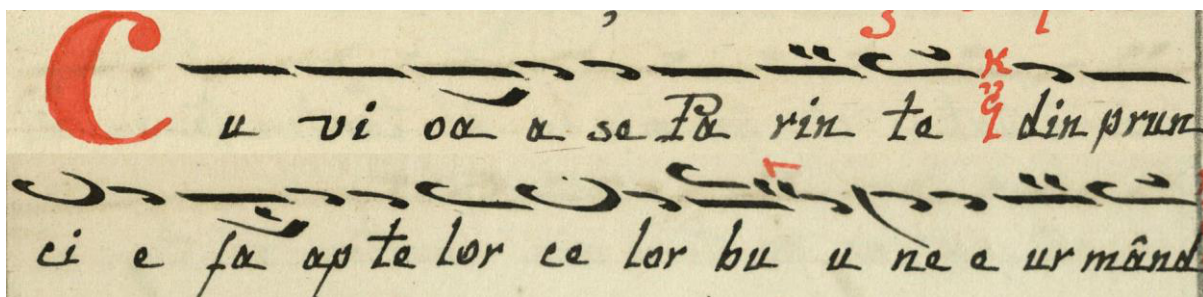 Cu vi oa a se Pa rin te din prun
ci e fa ap te lor ce lor bu u ne e ur mând